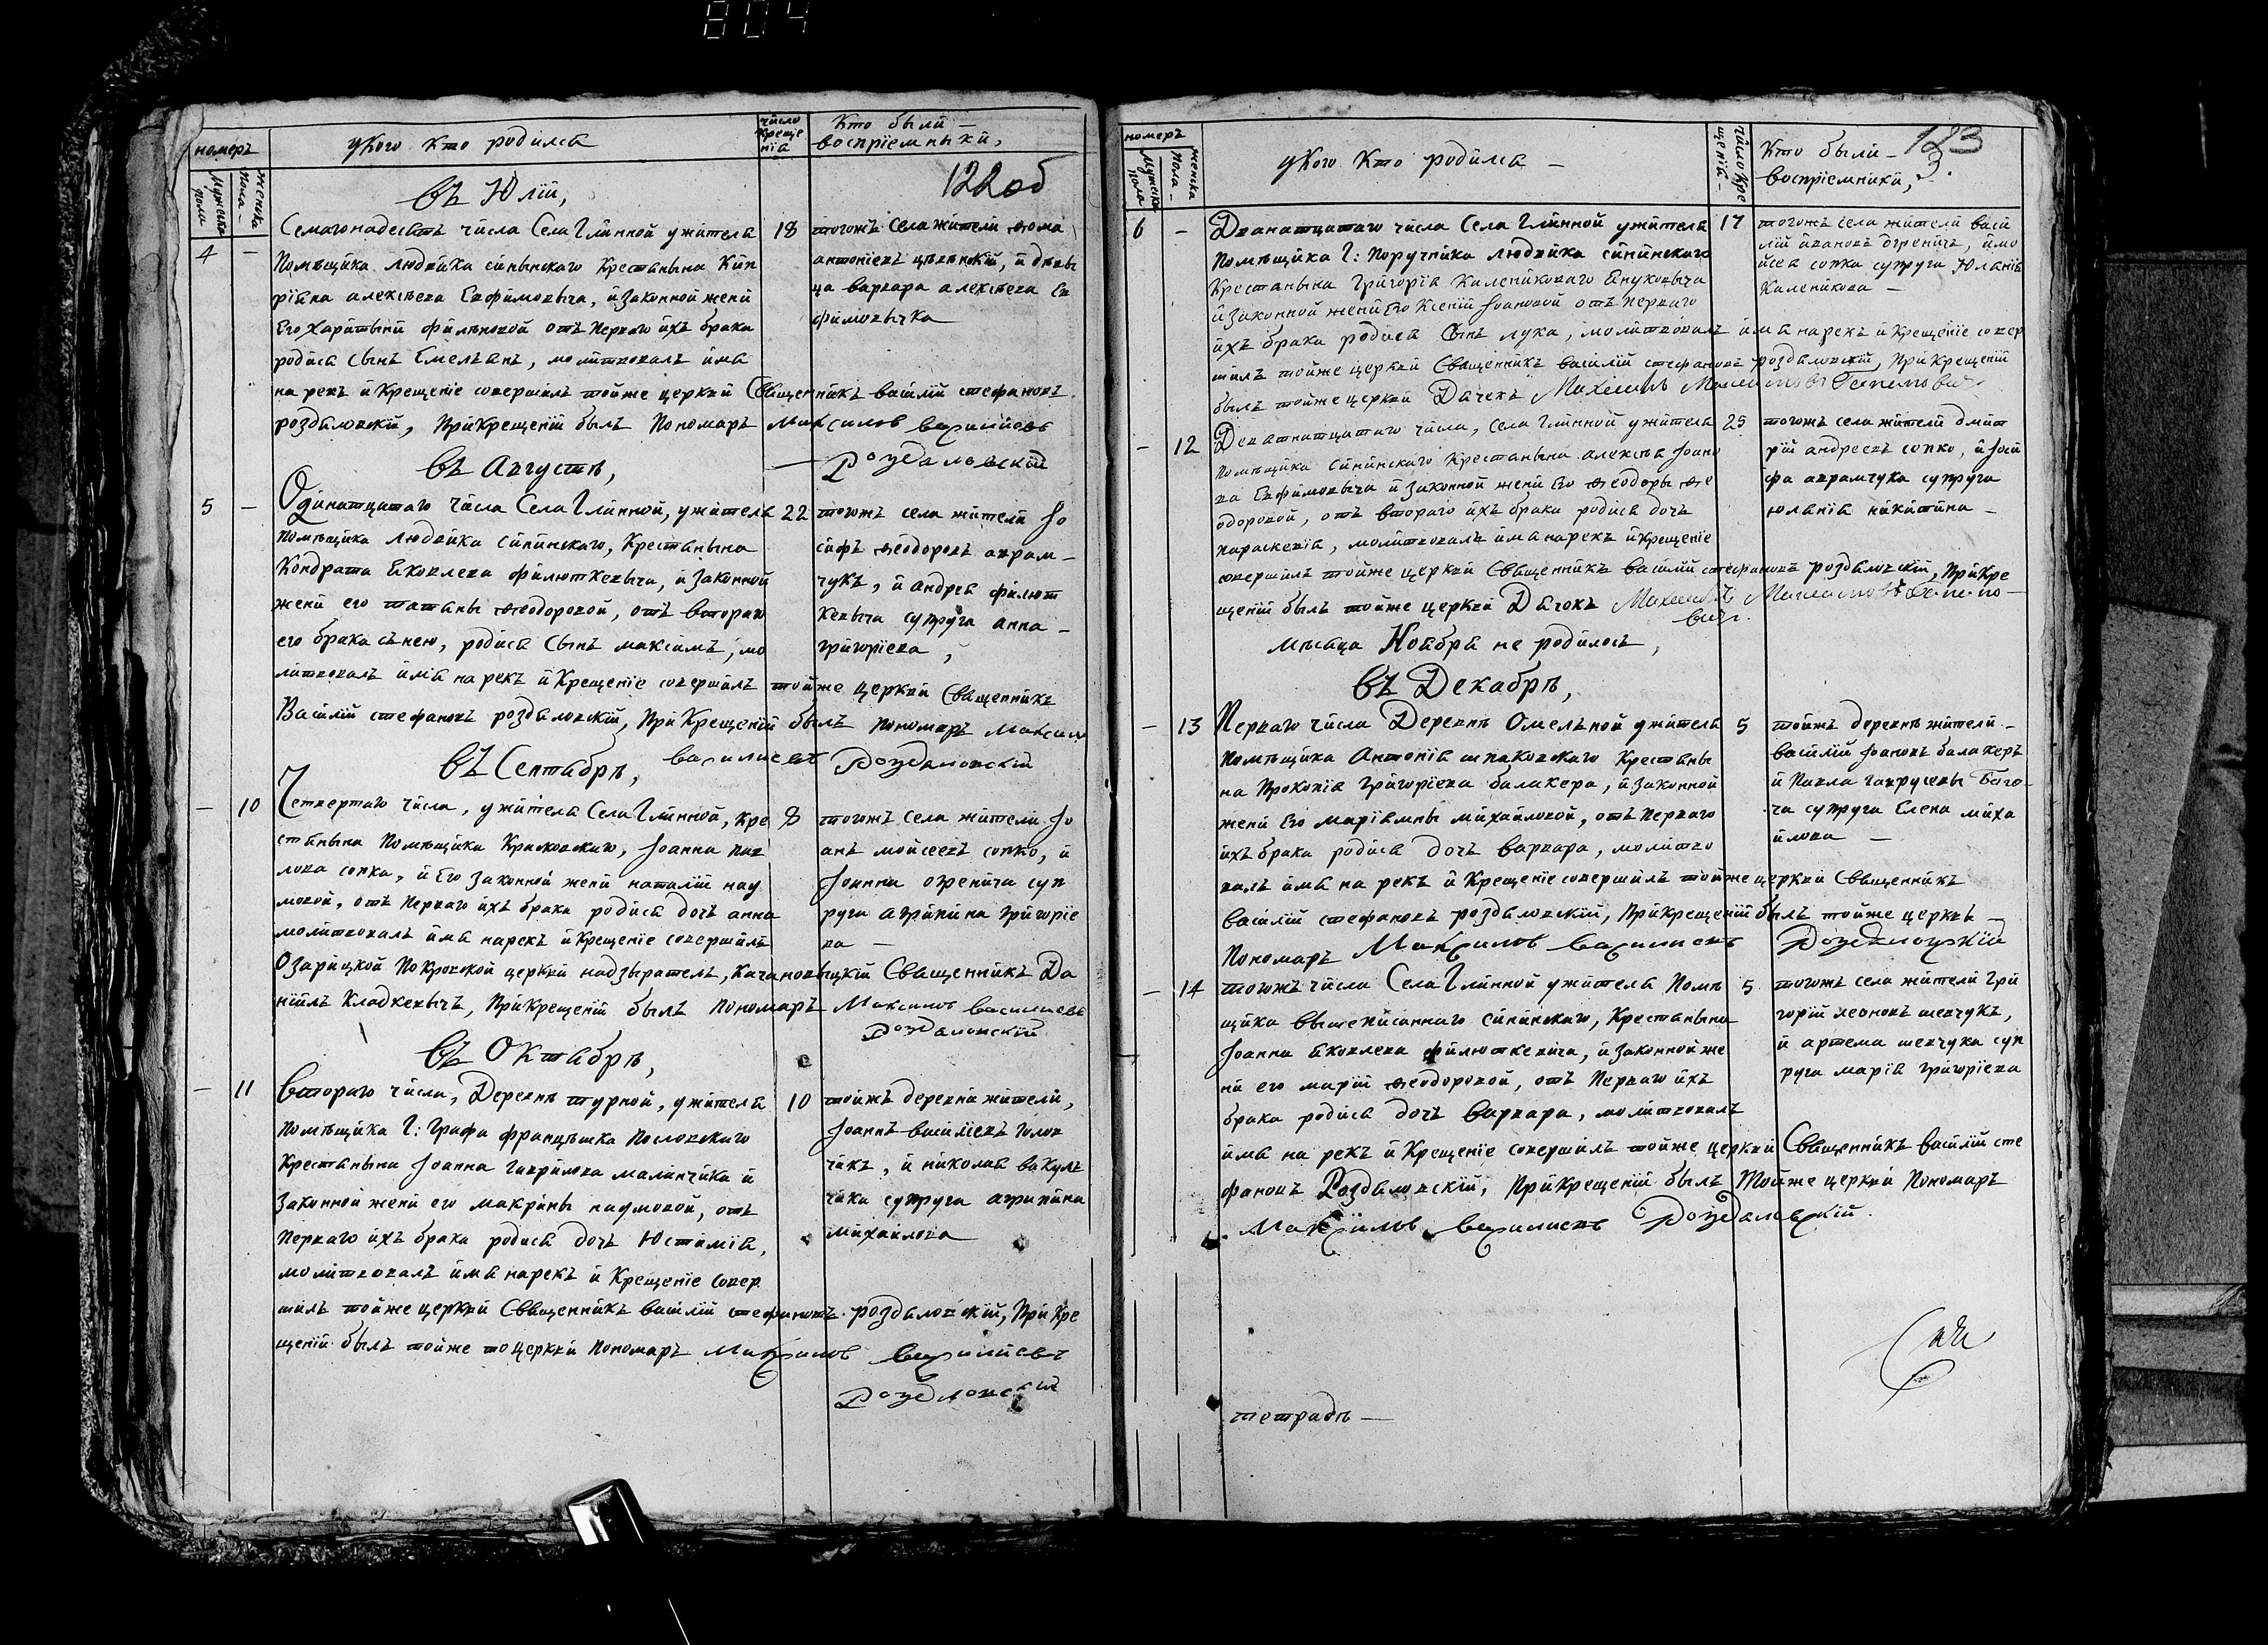 804
номеръ
мужеска пола
женска пола –
укого кто родился
число креще нїя
кто были –
воспрїемныки,
122 об
въ Юлїи,
4 –
Семагонадесять числа Села Глинной ужителя
помѣщика людвика синынскаго крестянына Кип
рїяна алексѣева Евфимовыча, и законной жени
Его харитыни филѣновой отъ перваго ихъ брака
родися сынъ Емельянъ, молитвовалъ имя
на рекъ и крещенїе совершилъ тойже церкви Священникъ василїй стефановъ
роздяловскїй, при крещенїи былъ пономаръ Максимов василиевъ
Роздяловскїй
18
тогожъ села жители ѳома
антонїевъ цѣвинскїй, и дѣвы
ца варвара алексѣева Ев
фимовычка
въ Августѣ,
5 –
Одинатцатаго числа Села Глинной, ужителя
помѣщика людвика синѣнскаго, крестянына
Кондрата Яковлева филюткевыча, и законной
жени его татяны ѳеодоровой, отъ втораго
его брака сънею, родися сынъ максимъ, мо
литвовалъ имя на рекъ и крещенїе совершилъ тойже церкви Священникъ
Василїй стефановъ роздяловскїй, при крещенїи былъ пономаръ Максим
василиевъ Роздяловскїй
22
тогожъ села жители Іо
сифъ ѳеодоровъ аврам–
чукъ, и андрея филют
кевыча супруга анна –
григорїева,
въ Септябрѣ,
– 10
Четвертаго числа, ужителя Села Глинной, кре
стянына помѣщика Красковскаго, Іоанна пав
лова сопка, и Его законной жени наталїи нау
мовой, отъ перваго ихъ брака родися дочъ анна
молитвовалъ имя нарекъ и крещенїе совершилъ
Озарицкой покровской церкви надзырателъ, качановыцкїй Священникъ Да
нїилъ Кладкевычъ, при крещенїи былъ пономаръ Максимов василиевъ
Роздяловскїй
8
тогожъ села жители Іо
анъ мойсеевъ сопко, и
Іоанна огренича суп
руга агрипина григорїе
ва –
въ Октябрѣ,
– 11
втораго числа, Деревнѣ турной, ужителя
помѣщика Г: Графа францѣшка пословскаго
крестянына Іоанна гаврилова малинчика и
законной жени его макрины наумовой, отъ
перваго ихъ брака родися дочъ Юстимїя,
молитвовалъ имя нарекъ и крещенїе совер
шилъ тойже церкви Священникъ василїй стефановъ роздяловскїй, при кре
щенїи былъ тойже то церкви пономаръ Максимов василиевъ
Роздяловскїй
10
тойжъ деревни жители,
Іоаннъ васїлїевъ голов
чикъ, и николая вакулъ
чика супруга агрипина
михаилова
номеръ
мужеска пола
женска пола –
укого кто родился –
число кре щенїй –
кто были –
воспрїемники,
123
3.
6 –
Дванатцатаго числа Села Глинной ужителя
помѣщика Г: поручика людвика синїнскаго
крестянына григорїя калениковаго Януковыча
и законной жени Его ксенїи Іоановой отъ перваго
ихъ брака родися Сынъ лука, молитвовалъ имя нарекъ и крещенїе совер
шилъ тойже церкви Священникъ василїй стефановъ роздяловскїй, при крещенїи
былъ тойже церкви Дячекъ
17
тогожъ села жители васи
лїй ивановъ огреничъ, и мо
йсея сопка супруга Юланїя
каленикова –
– 12
Девятнатцатаго числа, села Глинной ужителя
помѣщика сининскаго крестянына алексѣя Іоано
ва Евфимовыча и законной жени Его ѳеодоры ѳе
одоровой, отъ втораго ихъ брака родися дочъ
параскевїя, молитвовалъ имя нарекъ и крещенїе
совершилъ тойже церкви Священникъ василїй стефановъ роздяловскїй, при кре
щенїи былъ тойже церкви Дячокъ
25
тогожъ села жители дмит
рїй андреевъ сопко, и Іоси
фа аврамчука супруга
юланїя никитина –
мѣсяца Ноября не родилось,
въ Декабрѣ,
– 13
Перваго числа Деревнѣ Омельной ужителя
помѣщика Антонїя шпаковскаго крестяны
на прокопїя григорїева балакера, и законной
жени Его марїямны михайловой, отъ перваго
ихъ брака родися дочъ варвара, молитво
валъ имя на рекъ и крещенїе совершилъ тойже церкви Священникъ
василїй стефановъ роздяловскїй, при крещенїи былъ тойже церквѣ –
пономаръ Максимов василиевъ Роздяловскїй
5
тойжъ деревнѣ жители –
василїй Іоановъ балакеръ
и павла гаврусевы бога–
ча супруга Елена миха
йлова –
– 14
тогожъ числа Села Глинной ужителя помѣ
щика вышеписаннаго синїнскаго, крестянына
Іоанна Яковлева филюткевича, и законной же
ни его марїи ѳеодоровой, отъ перваго ихъ
брака родися дочъ варвара, молитвовалъ
имя на рекъ и крещенїе совершилъ тойже церкви Священникъ василїй сте
фановъ Роздяловскїй, при крещенїи былъ тойже церкви пономаръ
Максимов василиевъ Роздяловскїй
5
тогожъ села жители гри
горїй леоновъ шевчукъ,
и артема шевчука суп
руга марїя григорїева
тетрадь –